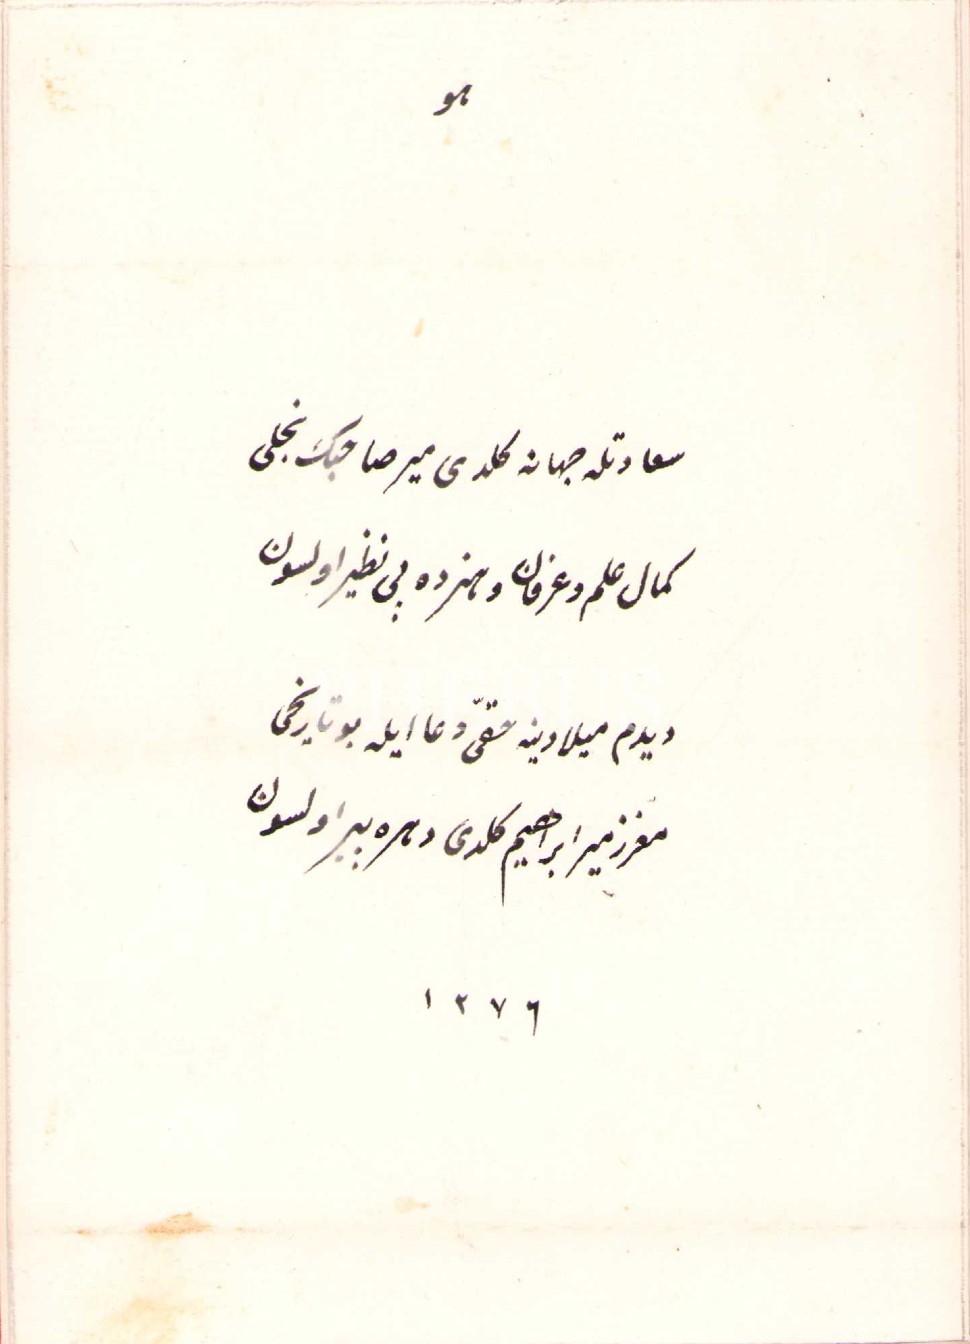 هو
سعادتله جهانه كلدی میر صاحبك نجلی
كمال علم و عرفان و هنرده بی نظیر اولسون
دیدم میلادینه حقّی دعا ایله بو تاریخی
معزز میر ابراهیم كلدی دهره پیر اولسون
١٢٧٦